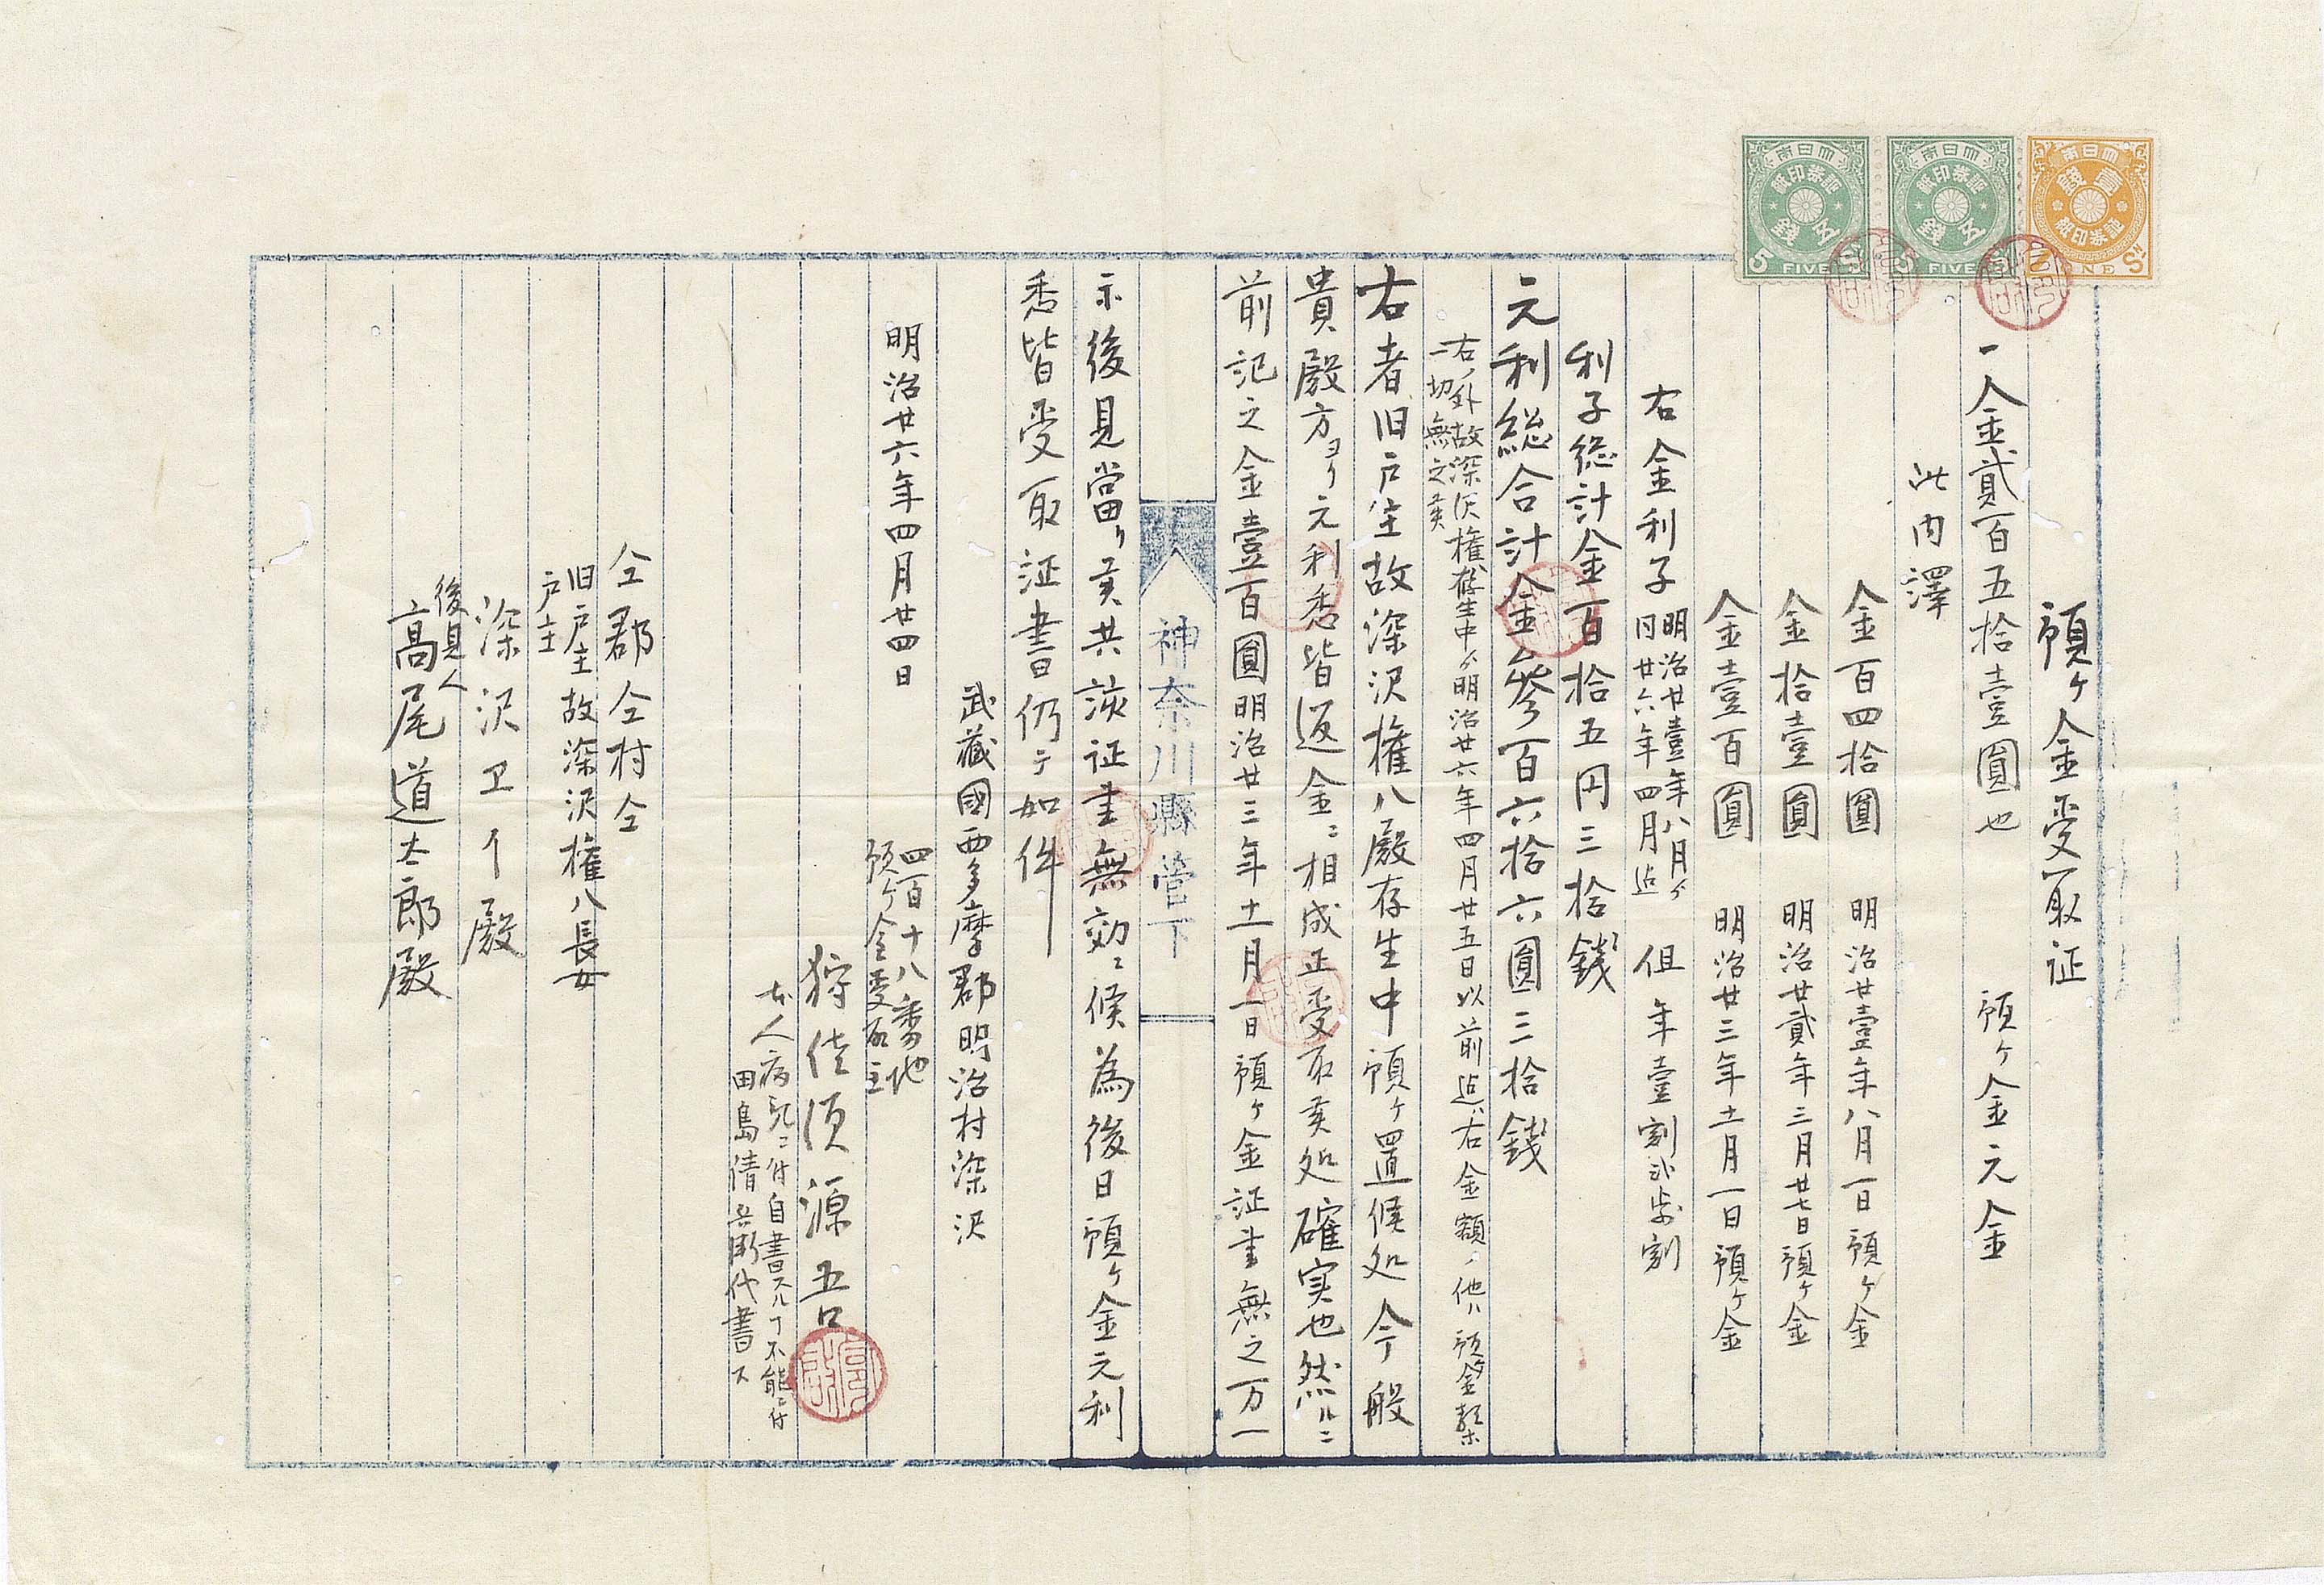 預ケ金受取証
一金貳百五拾壹圓也 預ケ金元金
此内澤
金百四拾圓 明治廿壹年八月一日預ケ金
金拾壹圓 明治廿貳年三月廿七日預ケ金
金壹百圓 明治廿三年十一月一日預ケ金
右金利子 明治廿壹年八月ゟ
同廿六年四月迠 但年壹割
利子総計金百拾五円三拾銭
元利総合計金参百六拾六圓三拾銭
右ノ外故深沢権八存生中ゟ明治廿六年四月廿五日以前迠ハ右金額ノ他ハ預ケ金
一切無之候
右者旧戸主故深沢権八殿存生中預ケ置候処今般
貴殿方ヨリ元利悉皆返金ニ相成正ニ受取候処確実也然ルニ
前記之金壹百圓明治廿三年十一月一日預ケ金証書無之万一
神奈川縣管下
示後見當リ候共該証書無効ニ候為後日預ケ金元利
悉皆受取証書仍テ如件
武藏國西多摩郡明治村深沢
明治廿六年四月廿四日
四百十八番地
預ケ金受取主
狩佳須源吾
本人病気ニ付自書スルヿ不能ニ付
田島清兵衛代書ス
仝郡仝村仝
旧戸主故深沢権八長女
戸主
深沢ヱイ殿
後見人
高尾道太郎殿
大日本
壹錢
証券印紙
ONE SN
大日本
証券印紙
五錢
5 FIVE SN
大日本
証券印紙
五錢
5 FIVE SN